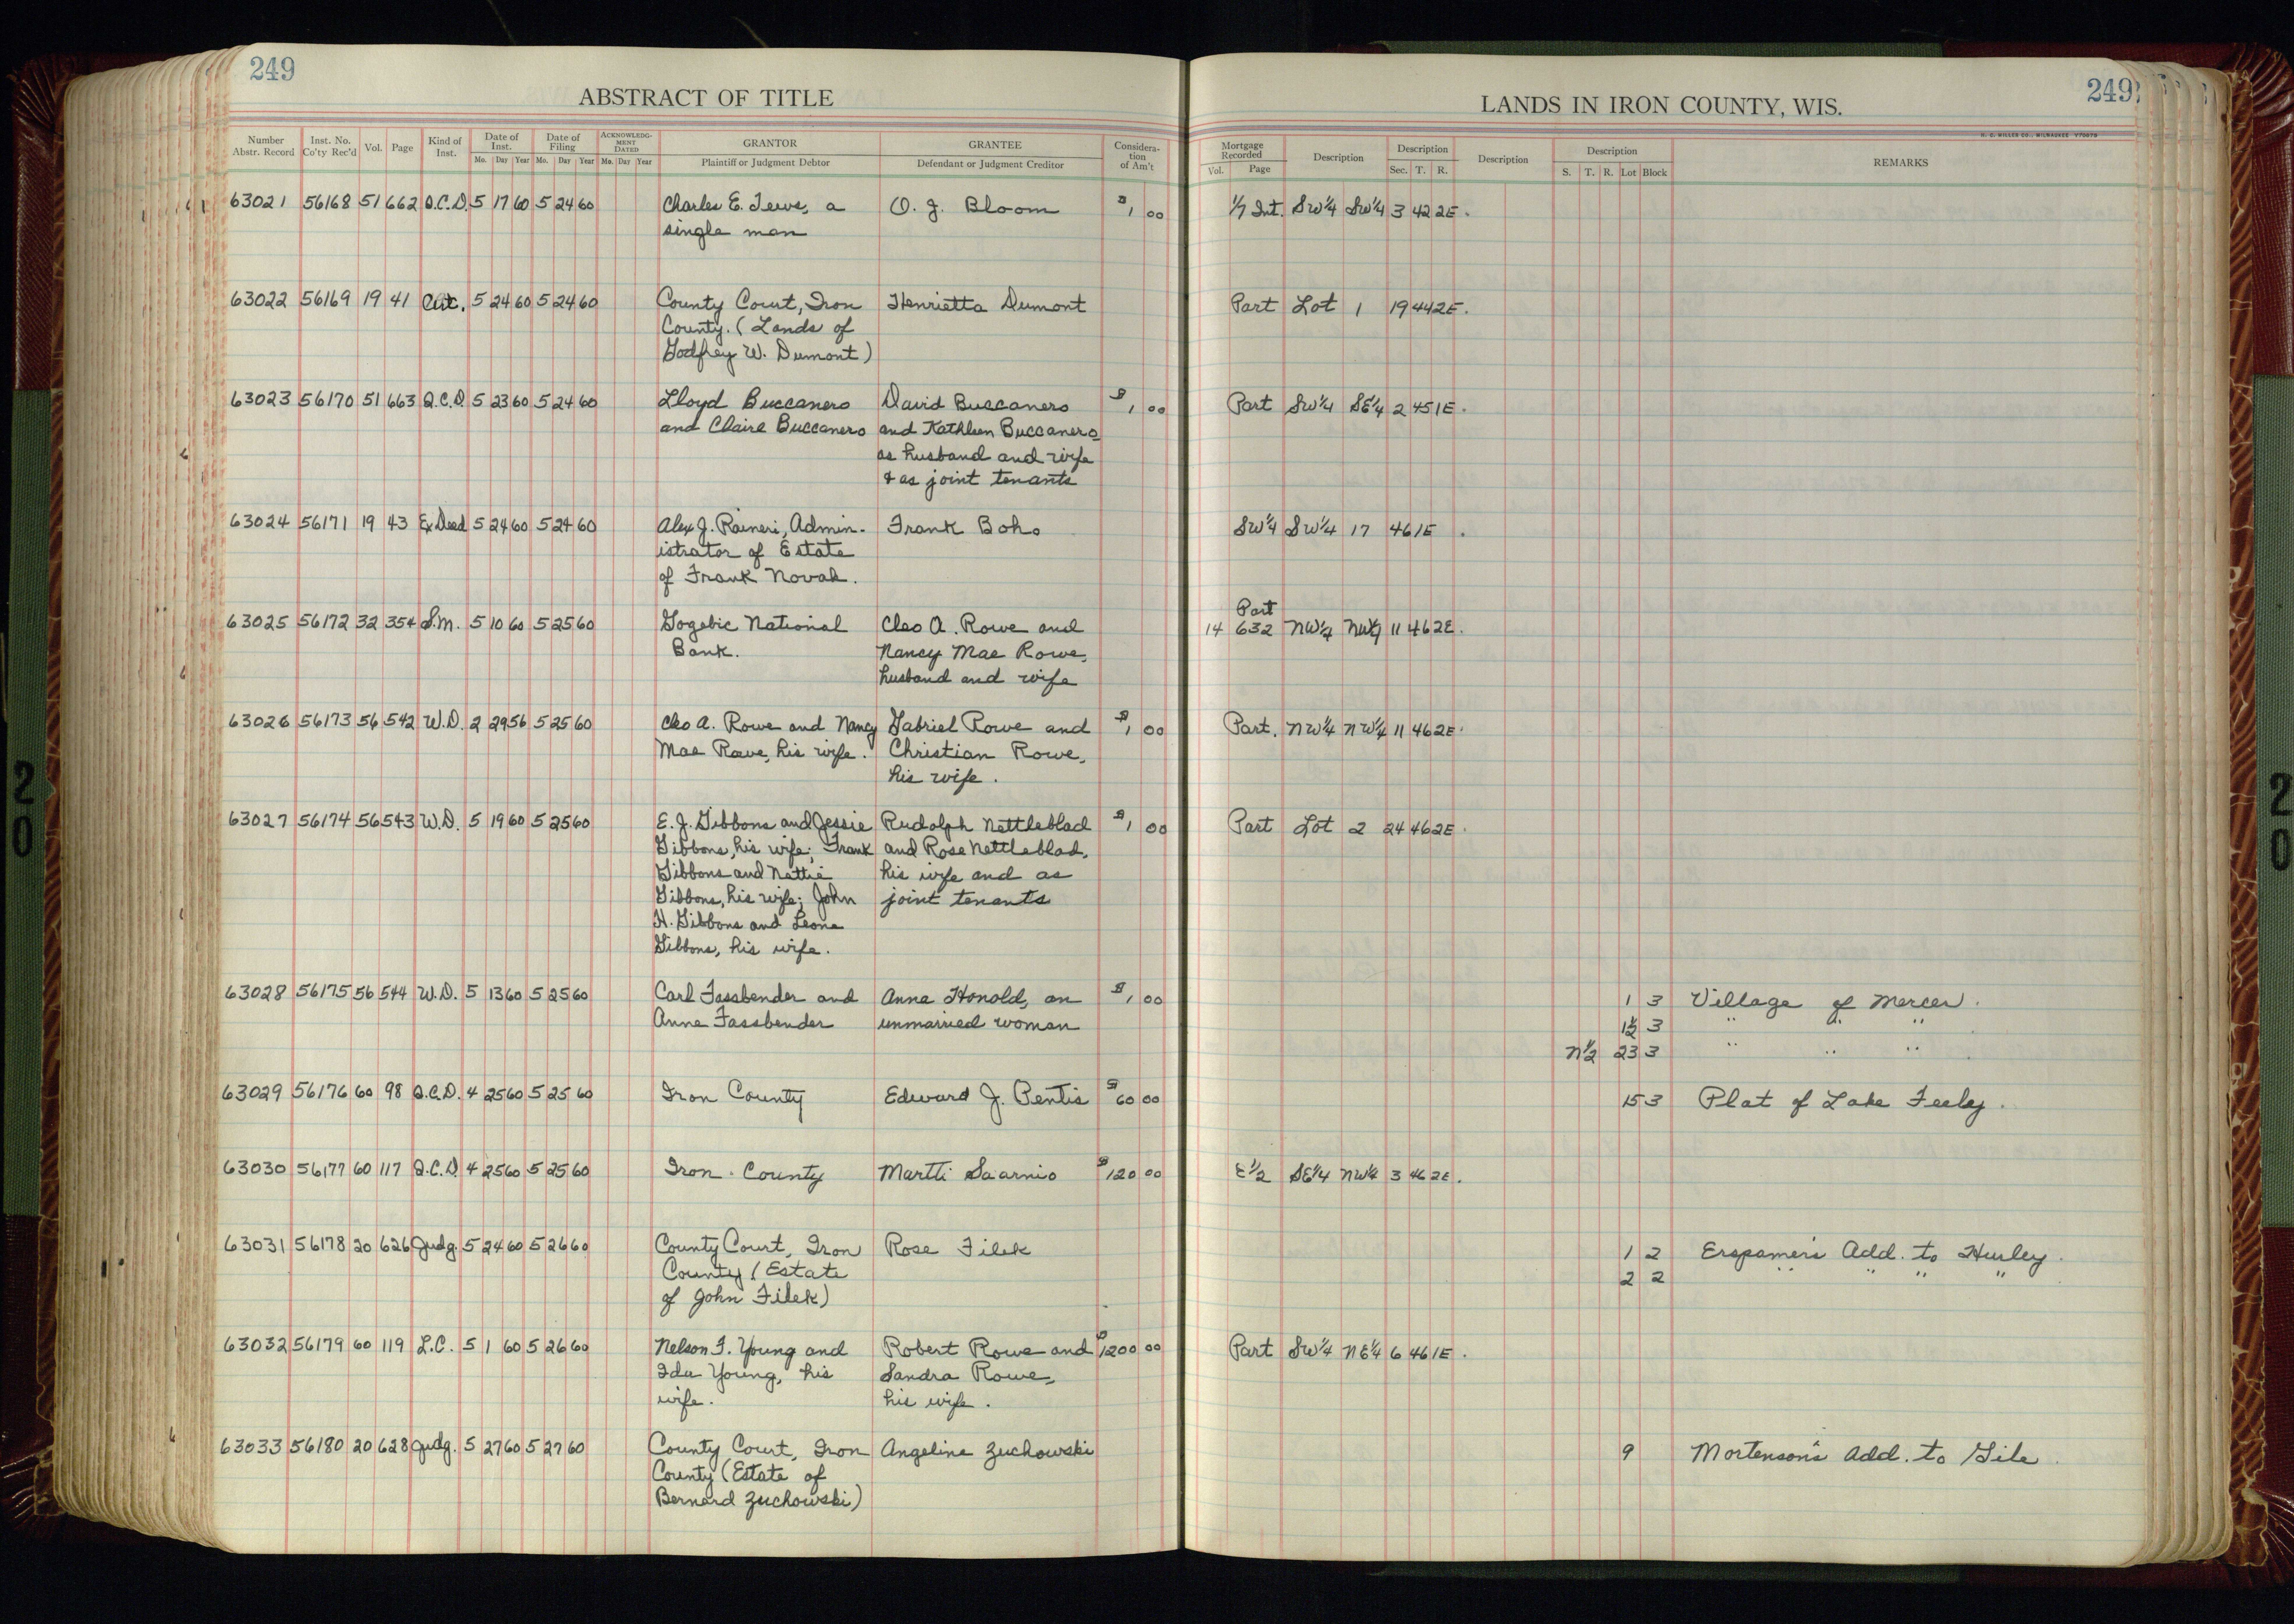 249
ABSTRACT OF TITLE
Number Abstr. Record Inst. No. Co'ty Rec'd Vol. Page Kind of Inst. Date of Inst. Mo. Day Year Date of Filing Mo. Day Year ACKNOWLEDGMENT DATED Mo. Day Year GRANTOR Plaintiff or Judgment Debtor GRANTEE Defendant or Judgment Creditor Consideration of Am't
63021 56168 51 662 Q.C.D. 5 17 60 5 24 60 Charles E. Tews, a O. J. Bloom $1 00
single man
63022 56169 19 41 5 24 60 5 24 60 County Court, Iron Henrietta Dumont
County. (Lands of
Godfrey W. Dumont)
63023 56170 51 663 Q.C.D. 5 23 60 5 24 60 Lloyd Buccanero David Buccanero $1 00
and Claire Buccanero and Kathleen Buccanero
as husband and wife
& as joint tenants
63024 56171 19 43 Ex Deed 5 24 60 5 24 60 Alex J. Raineri, Admin- Frank Boho
istrator of Estate
of Frank Novak.
63025 56172 32 354 S.M. 5 10 60 5 25 60 Gogebic National Cleo A. Rowe and
Bank. Nancy Mae Rowe,
husband and wife
63026 56173 56 542 W.D. 2 29 56 5 25 60 Cleo A. Rowe and Nancy Gabriel Rowe and $1 00
Mae Rowe, his wife. Christian Rowe,
his wife.
63027 56174 56 543 W.D. 5 19 60 5 25 60 E. J. Gibbons and Jessie Rudolph Nettleblad $1 00
Gibbons, his wife; Frank and Rose Nettleblad,
Gibbons and Nettie his wife and as
Gibbons, his wife; John joint tenants
H. Gibbons and Leona
Gibbons, his wife.
63028 56175 56 544 W.D. 5 13 60 5 25 60 Carl Fassbender and Anna Honold, an $1 00
Anna Fassbender unmarried woman
63029 56176 60 98 Q.C.D. 4 25 60 5 25 60 Iron County Edward J. Pentis $60 00
63030 56177 60 117 Q.C.D. 4 25 60 5 25 60 Iron County Martti Saarnio $120 00
63031 56178 20 626 Judg. 5 24 60 5 26 60 County Court, Iron Rose Filek
County (Estate
of John Filek)
63032 56179 60 119 L.C. 5 1 60 5 26 60 Nelson F. Young and Robert Rowe and $1200 00
Ida Young, his Sandra Rowe,
wife. his wife.
63033 56180 20 628 Judg. 5 27 60 5 27 60 County Court, Iron Angeline Zuchowski
County (Estate of
Bernard Zuchowski)
249
LANDS IN IRON COUNTY, WIS.
H. C. MILLER CO., MILWAUKEE V70679
Mortgage Recorded Vol. Page Description Description Sec. T. R. Description Description S. T. R. Lot Block REMARKS
1/7 Int. SW¼ SW¼ 3 42 2E.
Part Lot 1 19 44 2E.
Part SW¼ SE¼ 2 45 1E.
SW¼ SW¼ 17 46 1E.
Part
14 632 NW¼ NW¼ 11 46 2E.
Part. NW¼ NW¼ 11 46 2E.
Part Lot 2 24 46 2E.
1 3 Village of Mercer.
12 3 " " "
N½ 23 3 " " "
15 3 Plat of Lake Feeley.
E½ SE¼ NW¼ 3 46 2E.
1 2 Erspamer's Add. to Hurley.
2 2 " " " "
Part SW¼ NE¼ 6 46 1E.
9 Mortenson's Add. to Gile
20
20